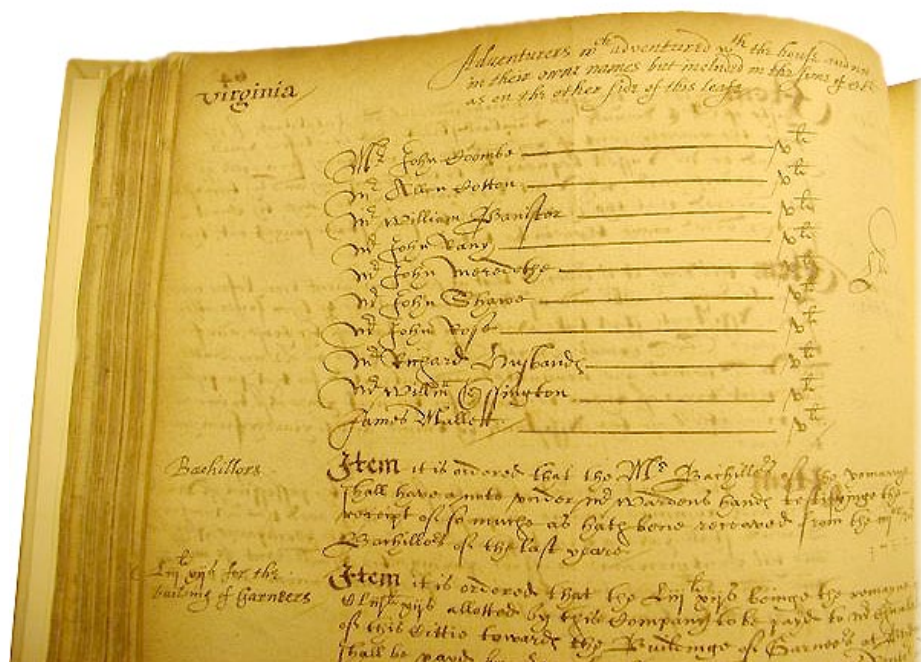 Virginia
Adventurers wch adventured wth the house and not
in their owne names but included in the sume of
as on the other side of this leafe
Mr John Coombe vli
Mr Allen Cotton vli
Mr William Banister vli
Mr John vli
Mr John Meredethe vli
Mr John Shawe vli
Mr John Rose vli
Mr Richard Husbands vli
Mr Willm Essington vli
James Mallett vli
Bachillors
Item it is ordered that the Mrs Bachillors of the
shall have a note under mr wardens hands testifyinge the
receipt of so muche as hath bene receaved from the
Bachillors of the last yeare
for the
builing of Garneers
Item it is ordered that the beinge the remayne
allotted by this Company to be payd to
of this Cittie towards the Buildinge of Garners at
shall be payd